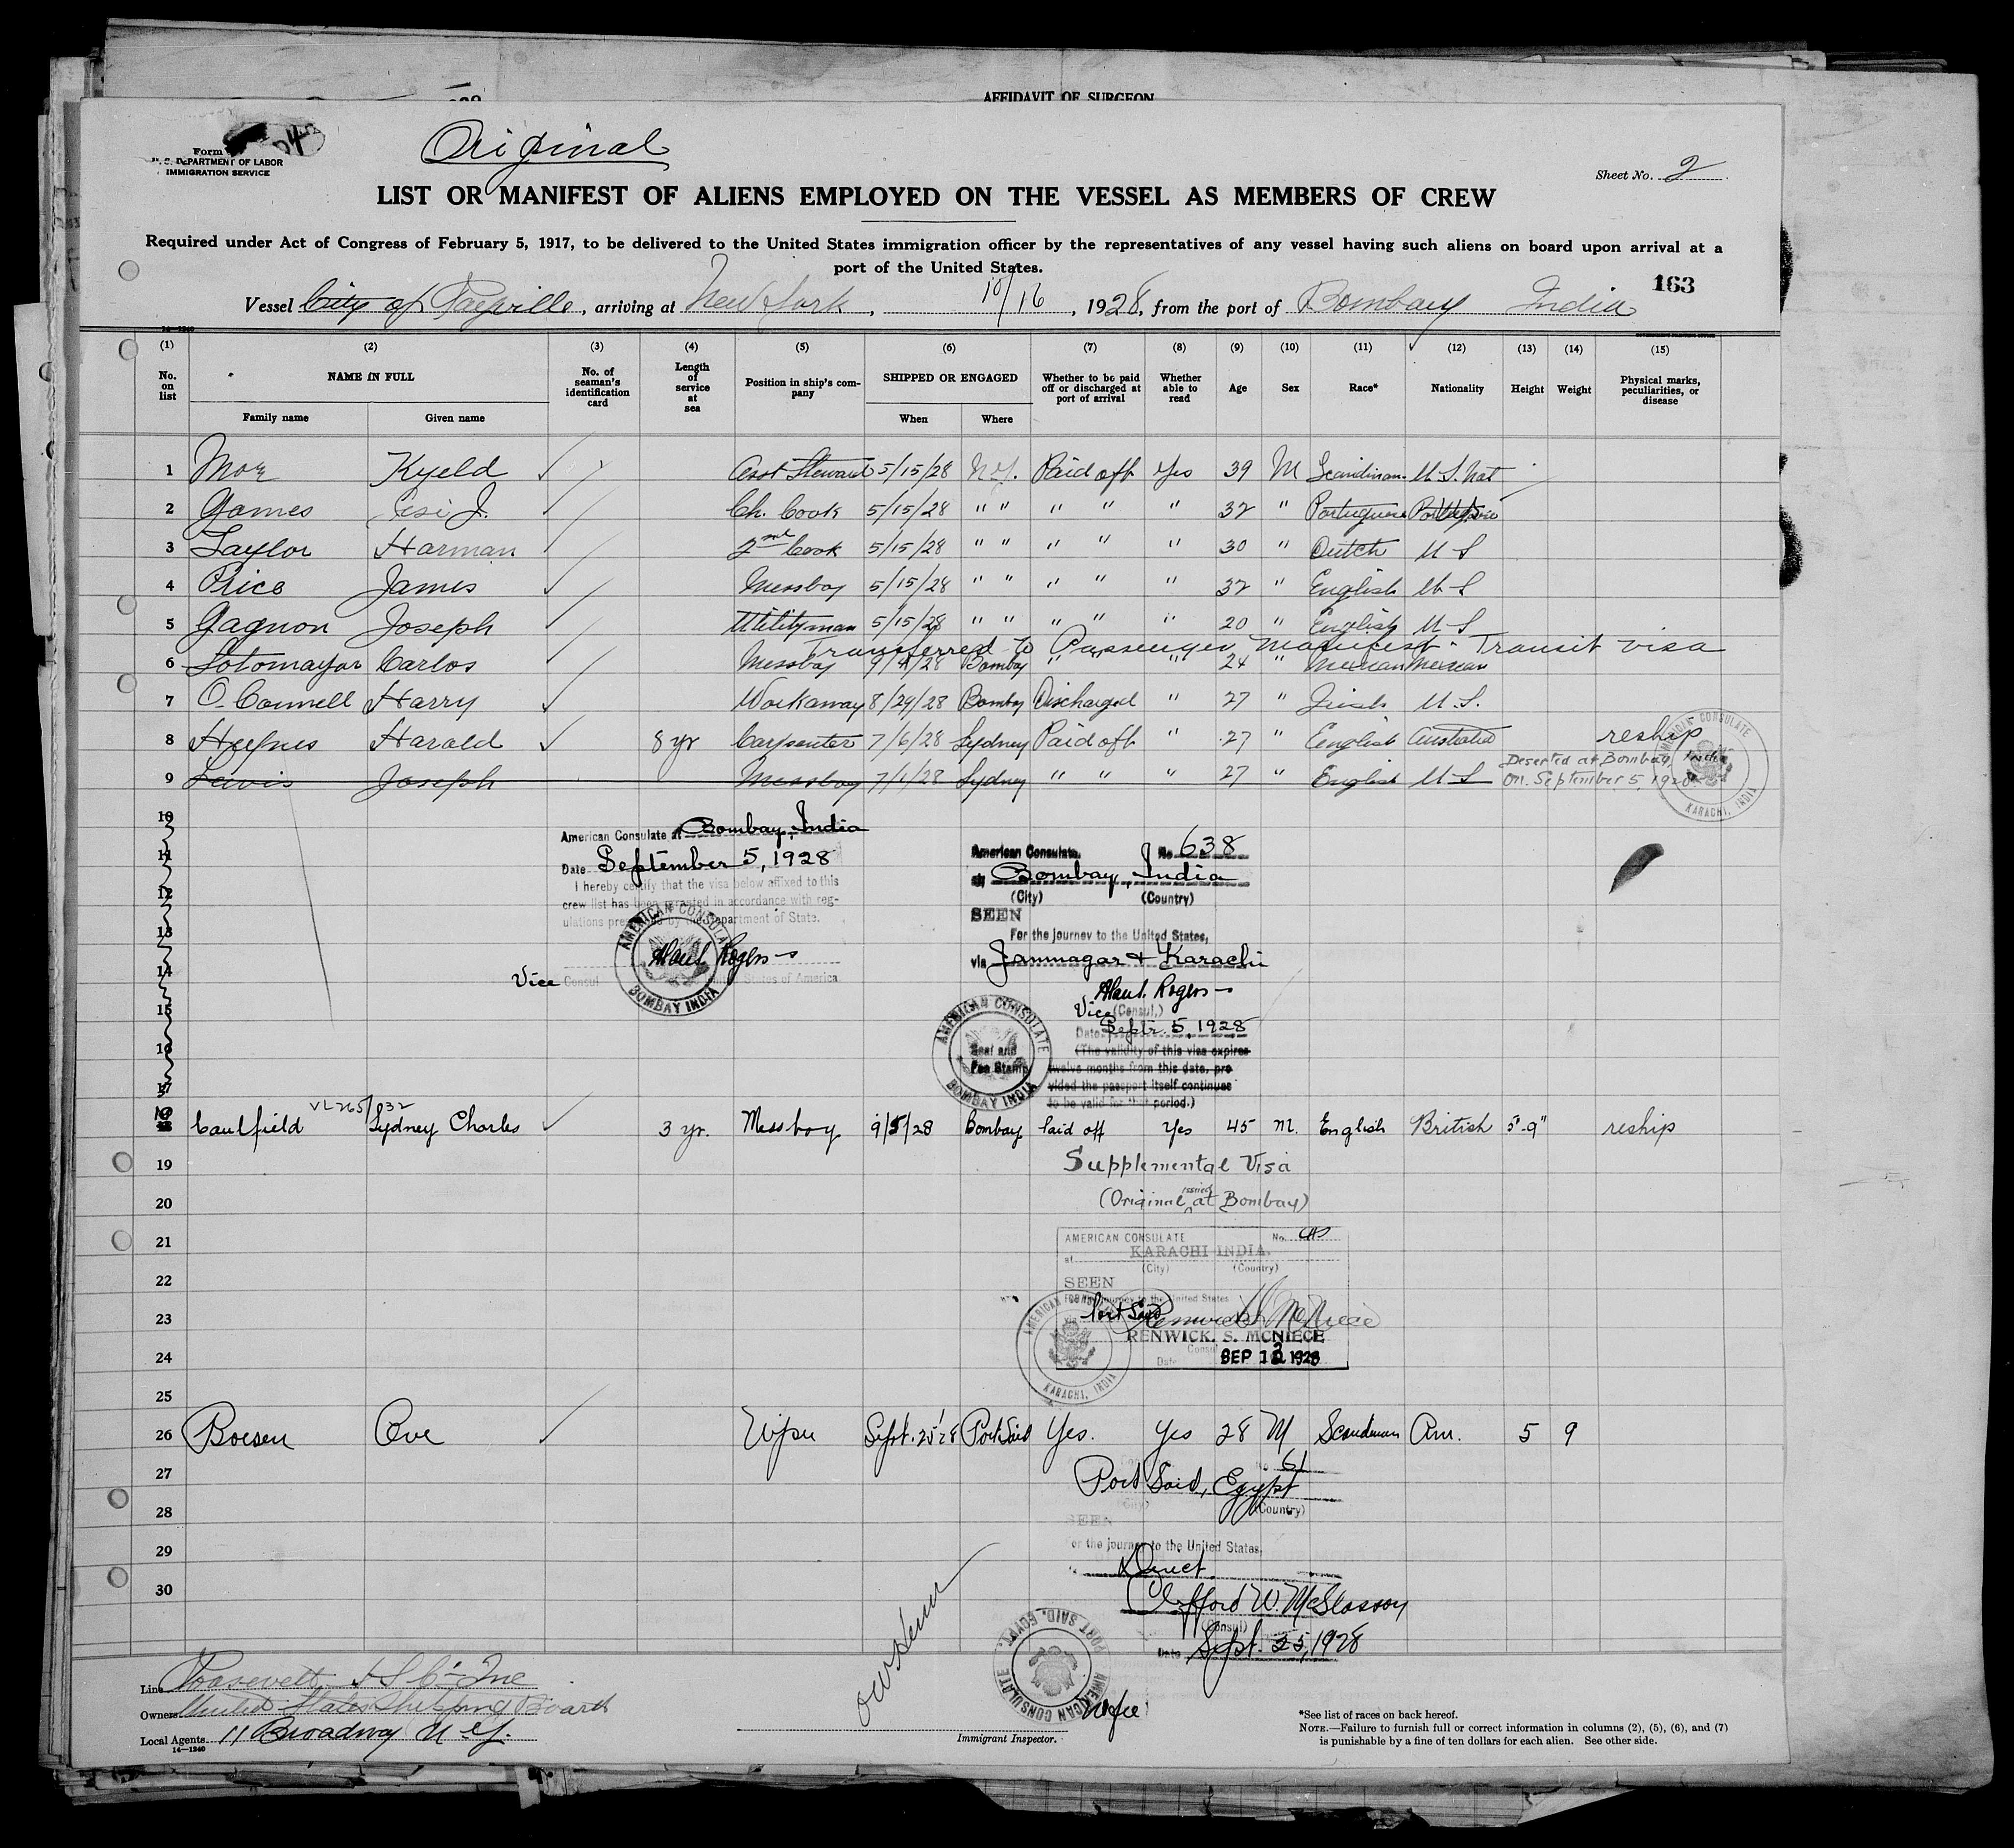 AFFIDAVIT OF SURGEON
Original
Form
U. S. DEPARTMENT OF LABOR
IMMIGRATION SERVICE
Sheet No. 2
LIST OR MANIFEST OF ALIENS EMPLOYED ON THE VESSEL AS MEMBERS OF CREW
Required under Act of Congress of February 5, 1917, to be delivered to the United States immigration officer by the representatives of any vessel having such aliens on board upon arrival at a
port of the United States.
163
Vessel City of Rayville, arriving at New York, 10/16, 1928, from the port of Bombay India
14—1240
(1) (2) (3) (4) (5) (6) (7) (8) (9) (10) (11) (12) (13) (14) (15)
No. on list NAME IN FULL Family name Given name No. of seaman's identification card Length of service at sea Position in ship's company SHIPPED OR ENGAGED When Where Whether to be paid off or discharged at port of arrival Whether able to read Age Sex Race* Nationality Height Weight Physical marks, peculiarities, or disease
1 Moe Kyeld Asst Steward 5/15/28 N.Y. Paid off Yes 39 M Scandinan. U. S. Nat
2 Gomes J. Ch. Cook 5/15/28 " " " " " 32 " Portuguese
3 Taylor Harman 2nd Cook 5/15/28 " " " " " 30 " Dutch U S
4 Price James Messboy 5/15/28 " " " " " 32 " English U S
5 Gagnon Joseph Utilityman 5/15/28 " " " " " 20 " English U S
Transferred to Passenger Manifest - Transit visa
6 Sotomayor Carlos Messboy 9/4/28 Bombay " " " 24 " Mexican Mexican
7 O'Connell Harry Workaway 8/29/28 Bombay Discharged " 27 " Irish U. S.
8 Harald 8 yr Carpenter 7/6/28 Sydney Paid off " 27 " English Australia reship
9 Lewis Joseph Messboy 7/1/28 Sydney " " " 27 " English U S Deserted at Bombay, India
on September 5, 1928
AMERICAN CONSULATE KARACHI, INDIA
10
11
12
13
14
15
16
17
American Consulate at Bombay, India
Date September 5, 1928
I hereby certify that the visa below affixed to this
crew list has been granted in accordance with reg-
ulations prescribed by the Department of State.
Vice Consul United States of America
AMERICAN CONSULATE BOMBAY INDIA
American Consulate, No 638
at Bombay, India
(City) (Country)
SEEN
For the journey to the United States,
via Jamnagar & Karachi
Rogers
Vice (Consul,)
Date Septr. 5, 1928
(The validity of this visa expires
twelve months from this date, pro
vided the passport itself continues
to be valid for that period.)
AMERICAN CONSULATE BOMBAY INDIA
Seal and
Fee Stamp
18 Caulfield Sydney Charles 3 yr. Messboy 9/5/28 Bombay Paid off Yes 45 M. English British 5'-9" reship
19 Supplemental Visa
20 (Original issued at Bombay)
21
22
23
24
25
AMERICAN CONSULATE No.
at KARACHI INDIA.
(City) (Country)
SEEN
For the journey to the United States
Port Said
Renwick S. McNiece
RENWICK. S. MCNIECE
Consul
Date SEP 12 1928
AMERICAN CONSULATE KARACHI, INDIA
26 Boesen Ove Wiper Sept. 25 '28 Port Said Yes. Yes 28 M Scandinan Am. 5 9
27
28
29
30
No 61
Port Said, Egypt
(City) (Country)
SEEN
For the journey to the United States,
Direct
Clifford W. McGlasson
(Consul)
Date Sept. 25, 1928
AMERICAN CONSULATE PORT SAID, EGYPT.
No fee
Line Roosevelt S S Co Inc
Owners United States Shipping Board
Local Agents 11 Broadway N. Y.
14—1240
Immigrant Inspector.
*See list of races on back hereof.
NOTE.—Failure to furnish full or correct information in columns (2), (5), (6), and (7)
is punishable by a fine of ten dollars for each alien. See other side.